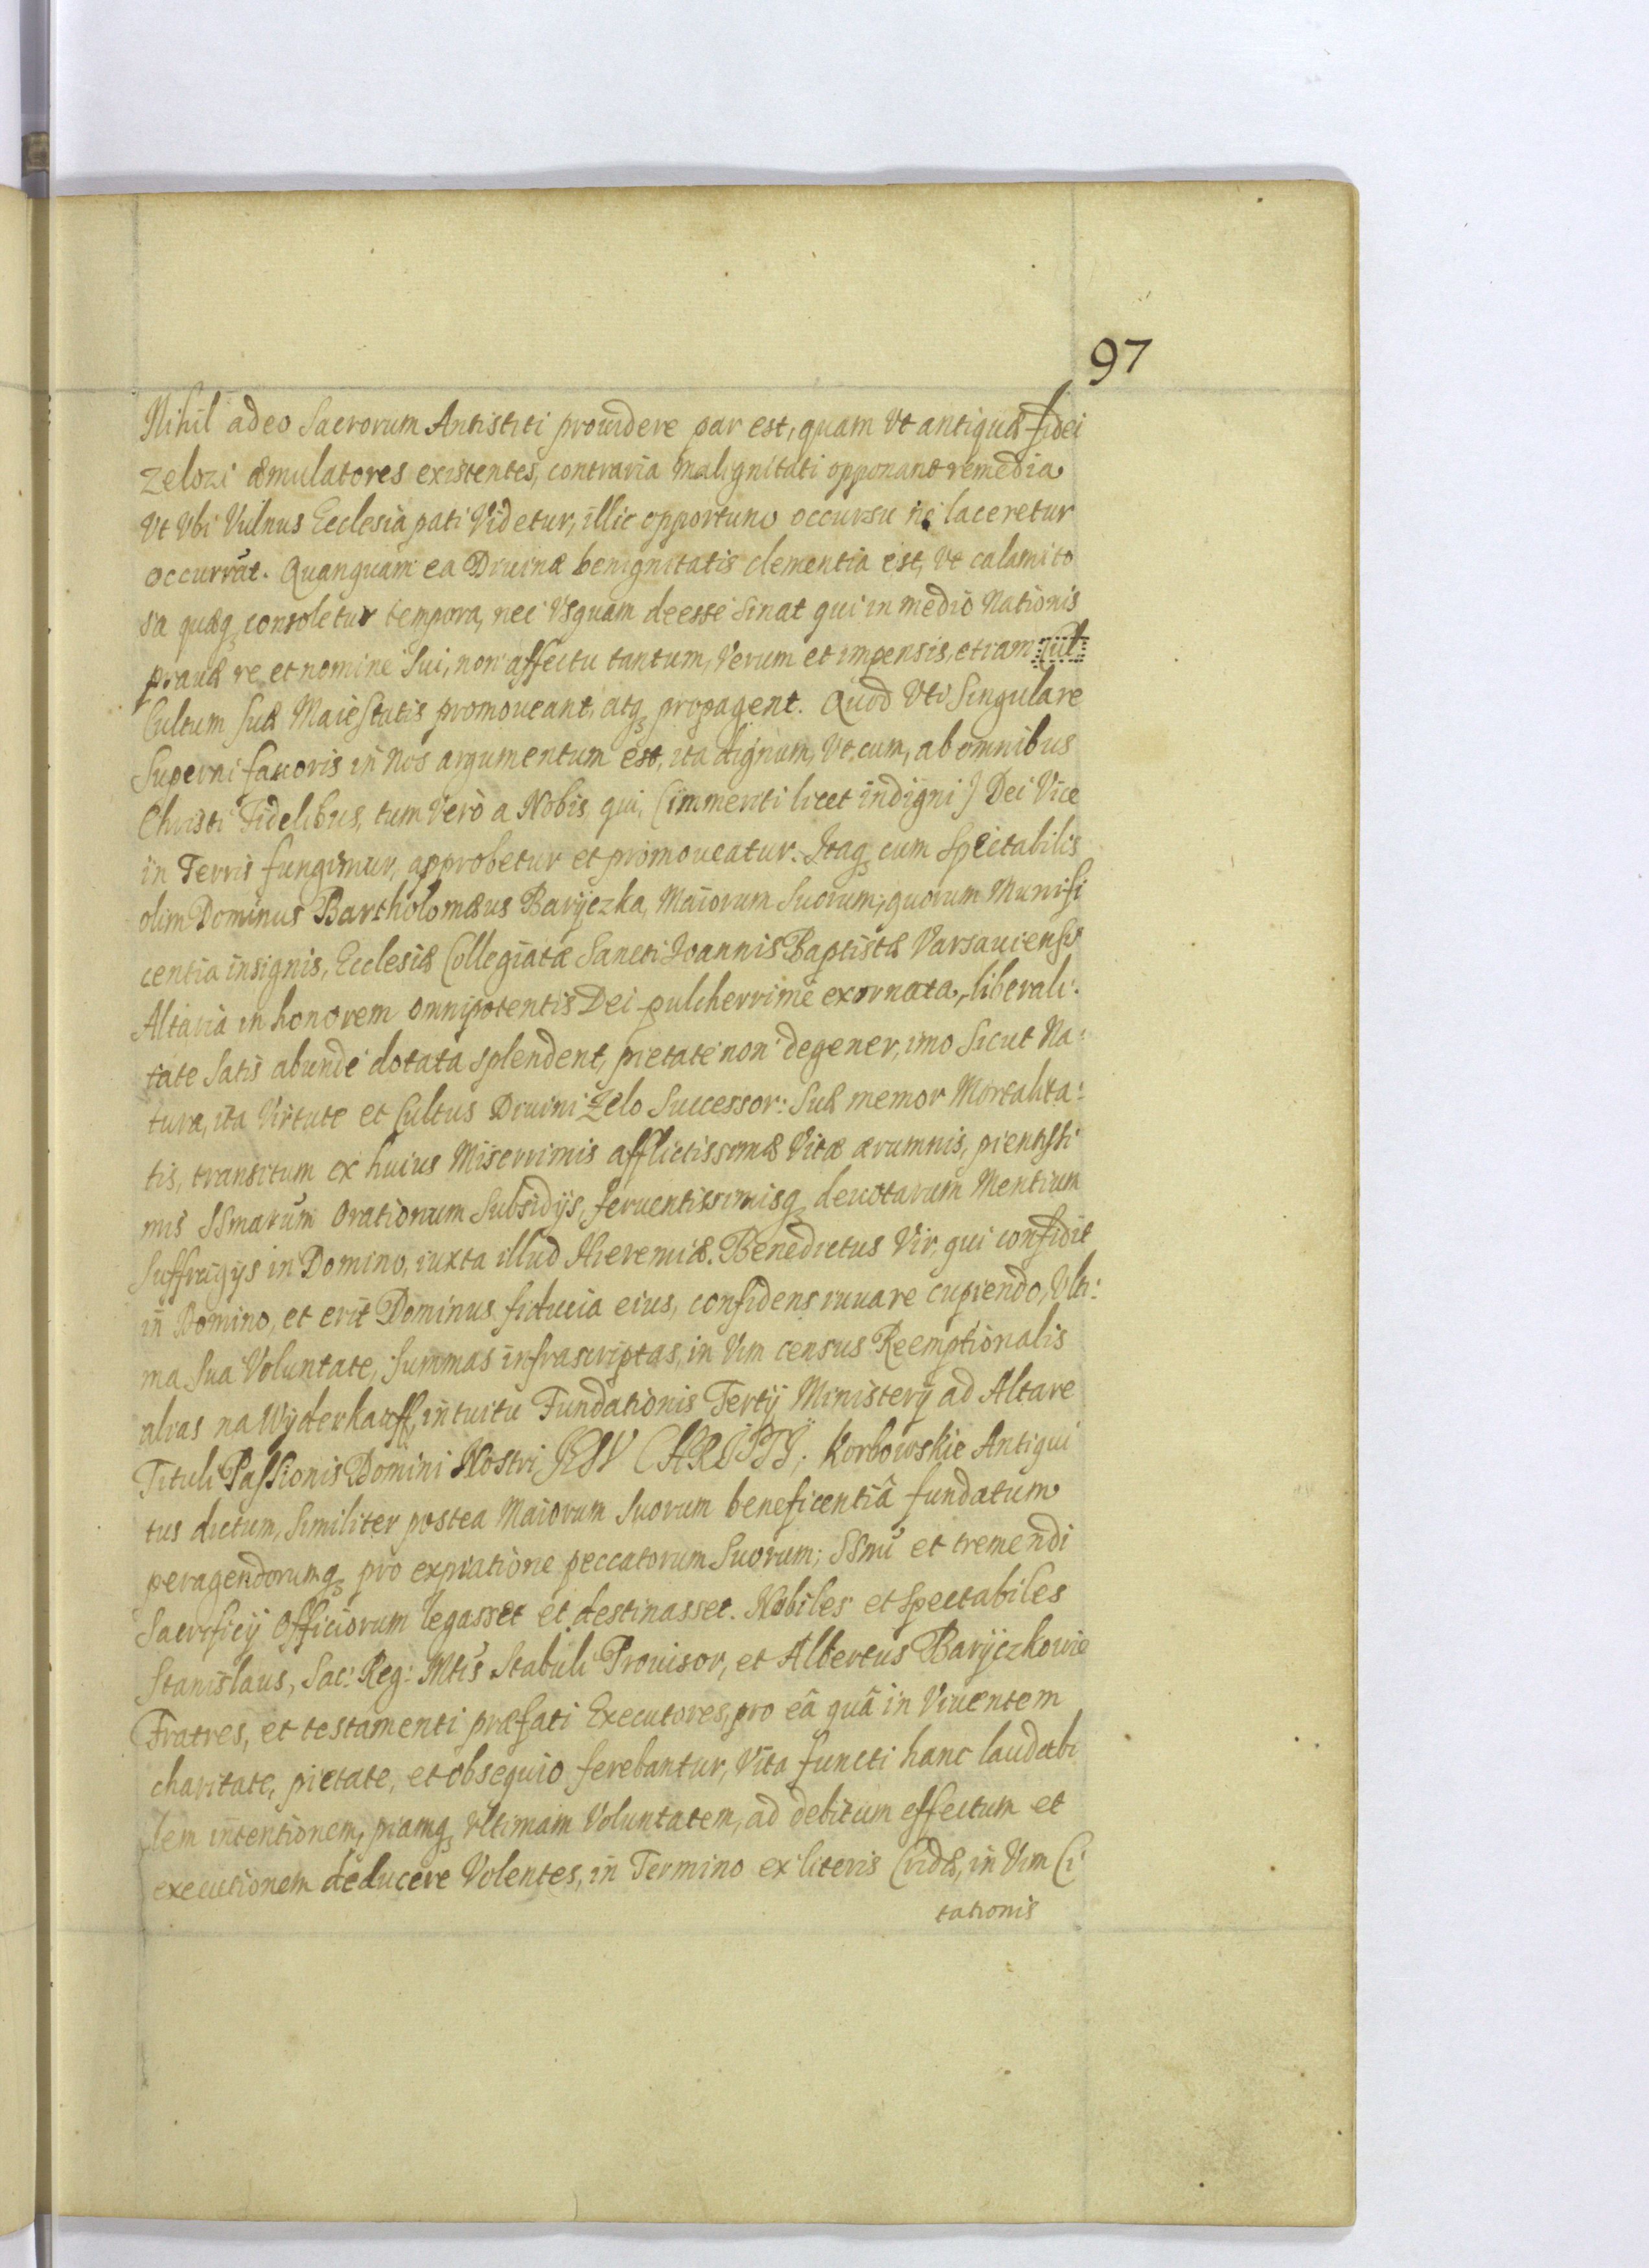 97
Nihil adeo Sacrorum Antistiti prouidere par est, quam Vt antiquæ fidei
zelozi æmulatores existentes, contraria malignitati opponant remedia
Vt Vbi Vulnus Ecclesia pati Videtur, illic opportuno occursu ne laceretur
occurrāt. Quanquam ea Diuinæ benignitatis clementia est, Vt calamito
sa quæq consoletur tempora, nec Vsquam deesse Sinat qui in medio Nationis
prauæ re et nomine Sui, non affectu tantum, Verum et impensis, etiam Cul
Cultum suæ Maiestatis promoueant, atq propagent. Quod Vti Singulare
Superni fauoris in Nos argumentum est, ita dignum, Vt cum, ab omnibus
Christi Fidelibus, tum Verò a Nobis, qui, (immeriti licet indigni) Dei Vice
in Terris fungimur, approbetur et promoueatur. Itaq cum Spectabilis
olim Dominus Bartholomæus Baryczka, Maiorum Suorum, quorum Munifi
centia insignis, Ecclesiæ Collegiatæ Sancti Ioannis Baptistæ Varsauiensis
Altaria in honorem Omnipotentis Dei pulcherrime exornata, liberali:
tate Satis abunde dotata splendent, pietate non degener, imo Sicut Na:
tura, ita Virtute et Cultus Diuini Zelo Successor: Suæ memor Mortalita:
tis, transitum ex huius Miserrimis afflictissimæ Vitæ ærumnis, pientissi
mis SSmarum Orationum Subsidijs, feruentissimisq deuotarum Mentium
Suffragijs in Domino, iuxta illud Hieremiæ. Benedictus Vir, qui confidit
in Domino, et erit Dominus fiducia eius, confidens iuuare cupiendo, Vlti:
ma Sua Voluntate, Summas infrascriptas, in Vim census Reemptionalis
alias na Wyderkauff, intuitu Fundationis Tertij Ministerij ad Altare
Tituli Passionis Domini Nostri JESV CHRISTI, Korbowskie Antiqui
tus dictum, Similiter postea Maiorum Suorum beneficentiâ fundatum
peragendorumq pro expiatione peccatorum Suorum; SSmi et tremendi
Sacrificij Officiorum legasset et destinasset. Nobiles et Spectabiles
Stanislaus, Sac: Reg: Mtis Stabuli Prouisor, et Albertus Baryczkowie
Fratres, et testamenti præfati Executores, pro eâ quâ in Viuentem
charitate, pietate, et obsequio ferebantur, Vita functi hanc laudabi
lem intentionem, piamq Vltimam Voluntatem, ad debitum effectum et
executionem deducere Volentes, in Termino ex literis Cridæ, in Vim Ci
tationis